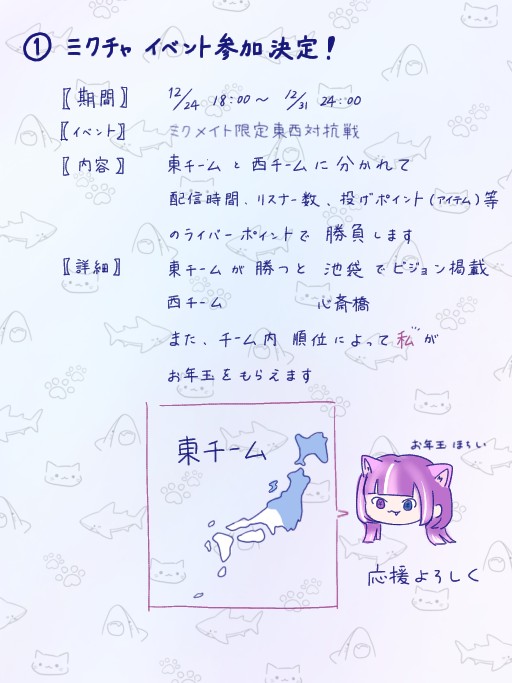 ① ミクチャ イベント参加決定!
〖期間〗 12/24 18:00~ 12/31 24:00
〖イベント〗 ミクメイト限定東西対抗戦
〖内容〗 東チームと西チームに分かれて
配信時間、リスナー数、投げポイント(アイテム)等
のライバーポイントで勝負します
〖詳細〗 東チームが勝つと 池袋でビジョン掲載
西チーム 心斎橋
また、チーム内 順位によって私が
お年玉をもらえます
東チーム
お年玉ほちい
応援よろしく